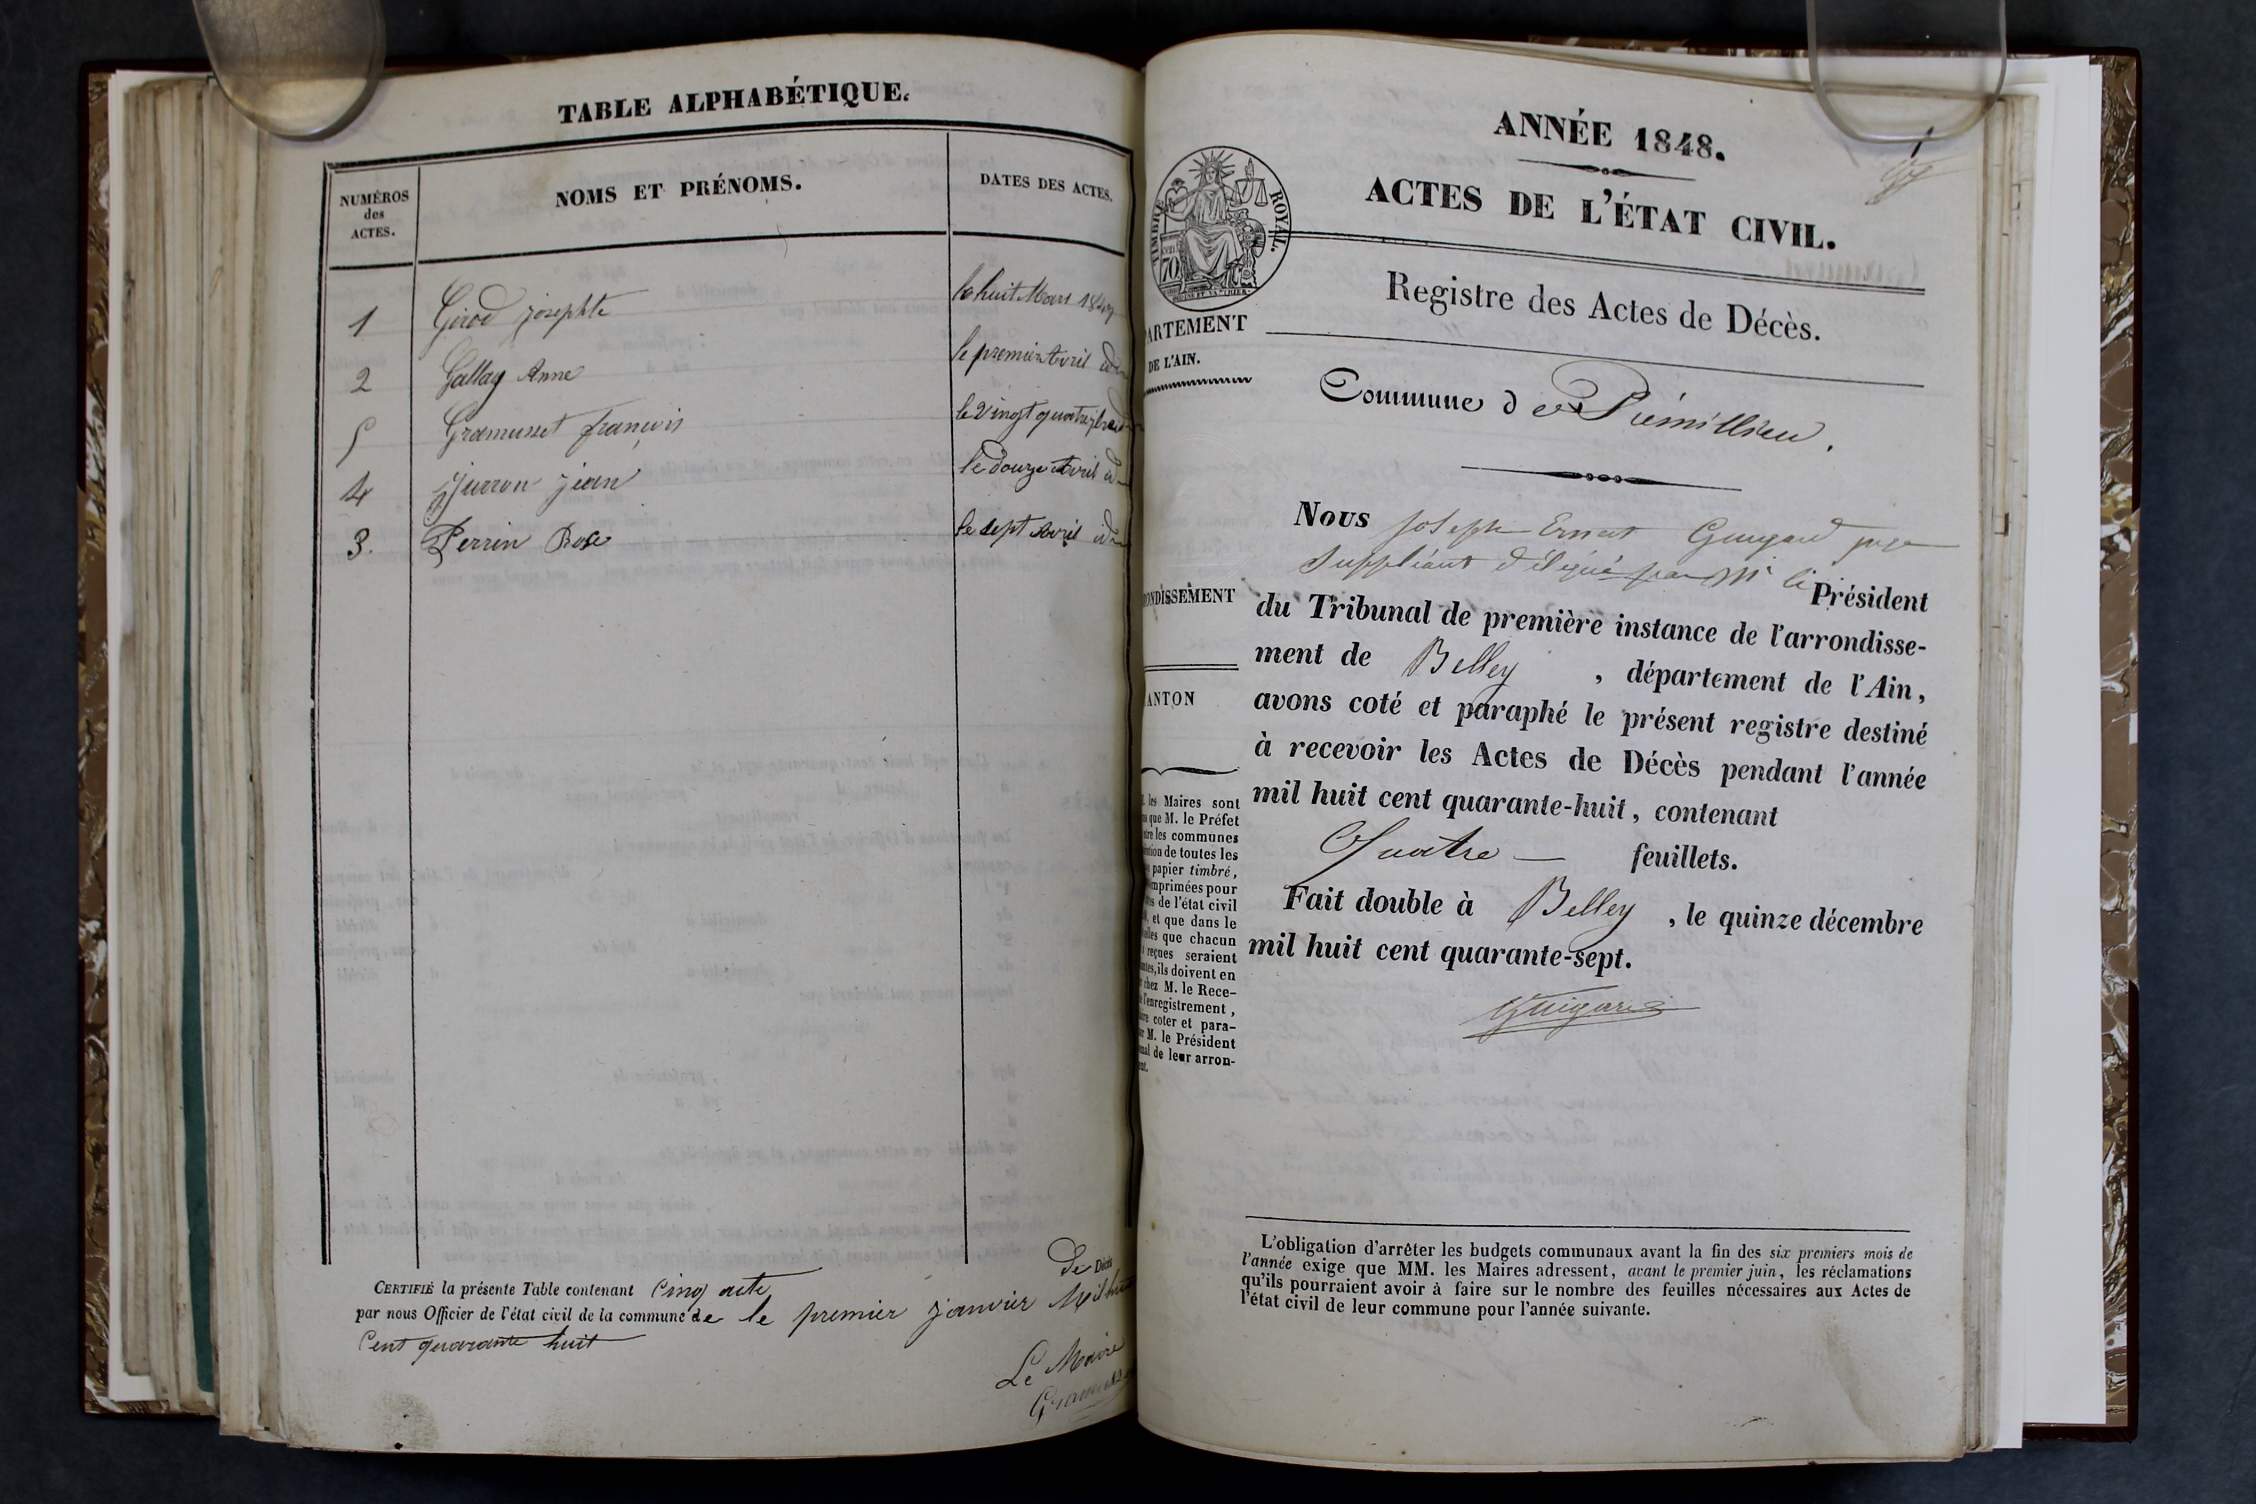 TABLE ALPHABÉTIQUE.
NUMÉROS des ACTES.
NOMS ET PRÉNOMS.
DATES DES ACTES.
1 Girod josephte le huit Mars 1847
2 Gallay Anne le premier Avril idem
5 Gramusset françois le Vingt quatre
4 Jurron jean le douze Avril idem
3. Perrin Rose le sept Avril idem
CERTIFIÉ la présente Table contenant Cinq acte de Décès
par nous Officier de l'état civil de la commune de le premier janvier Mil huit
Cent quarante huit
Le Maire
ANNÉE 1848.
1
ACTES DE L'ÉTAT CIVIL.
TIMBRE ROYAL.
70
Registre des Actes de Décès.
PARTEMENT
DE L'AIN.
Commune de Prémillieu.
Nous Joseph Ernest Guigard juge
suppléant délégué par Mr le Président
du Tribunal de première instance de l'arrondisse-
ment de Belley, département de l'Ain,
avons coté et paraphé le présent registre destiné
à recevoir les Actes de Décès pendant l'année
mil huit cent quarante-huit, contenant
Quatre — feuillets.
Fait double à Belley, le quinze décembre
mil huit cent quarante-sept.
Guigard
ONDISSEMENT
ANTON
les Maires sont
que M. le Préfet
les communes
de toutes les
papier timbré,
imprimées pour
de l'état civil
et que dans le
que chacun
reçues seraient
ils doivent en
chez M. le Rece-
l'enregistrement,
coter et para-
M. le Président
de leur arron-
L'obligation d'arrêter les budgets communaux avant la fin des six premiers mois de
l'année exige que MM. les Maires adressent, avant le premier juin, les réclamations
qu'ils pourraient avoir à faire sur le nombre des feuilles nécessaires aux Actes de
l'état civil de leur commune pour l'année suivante.